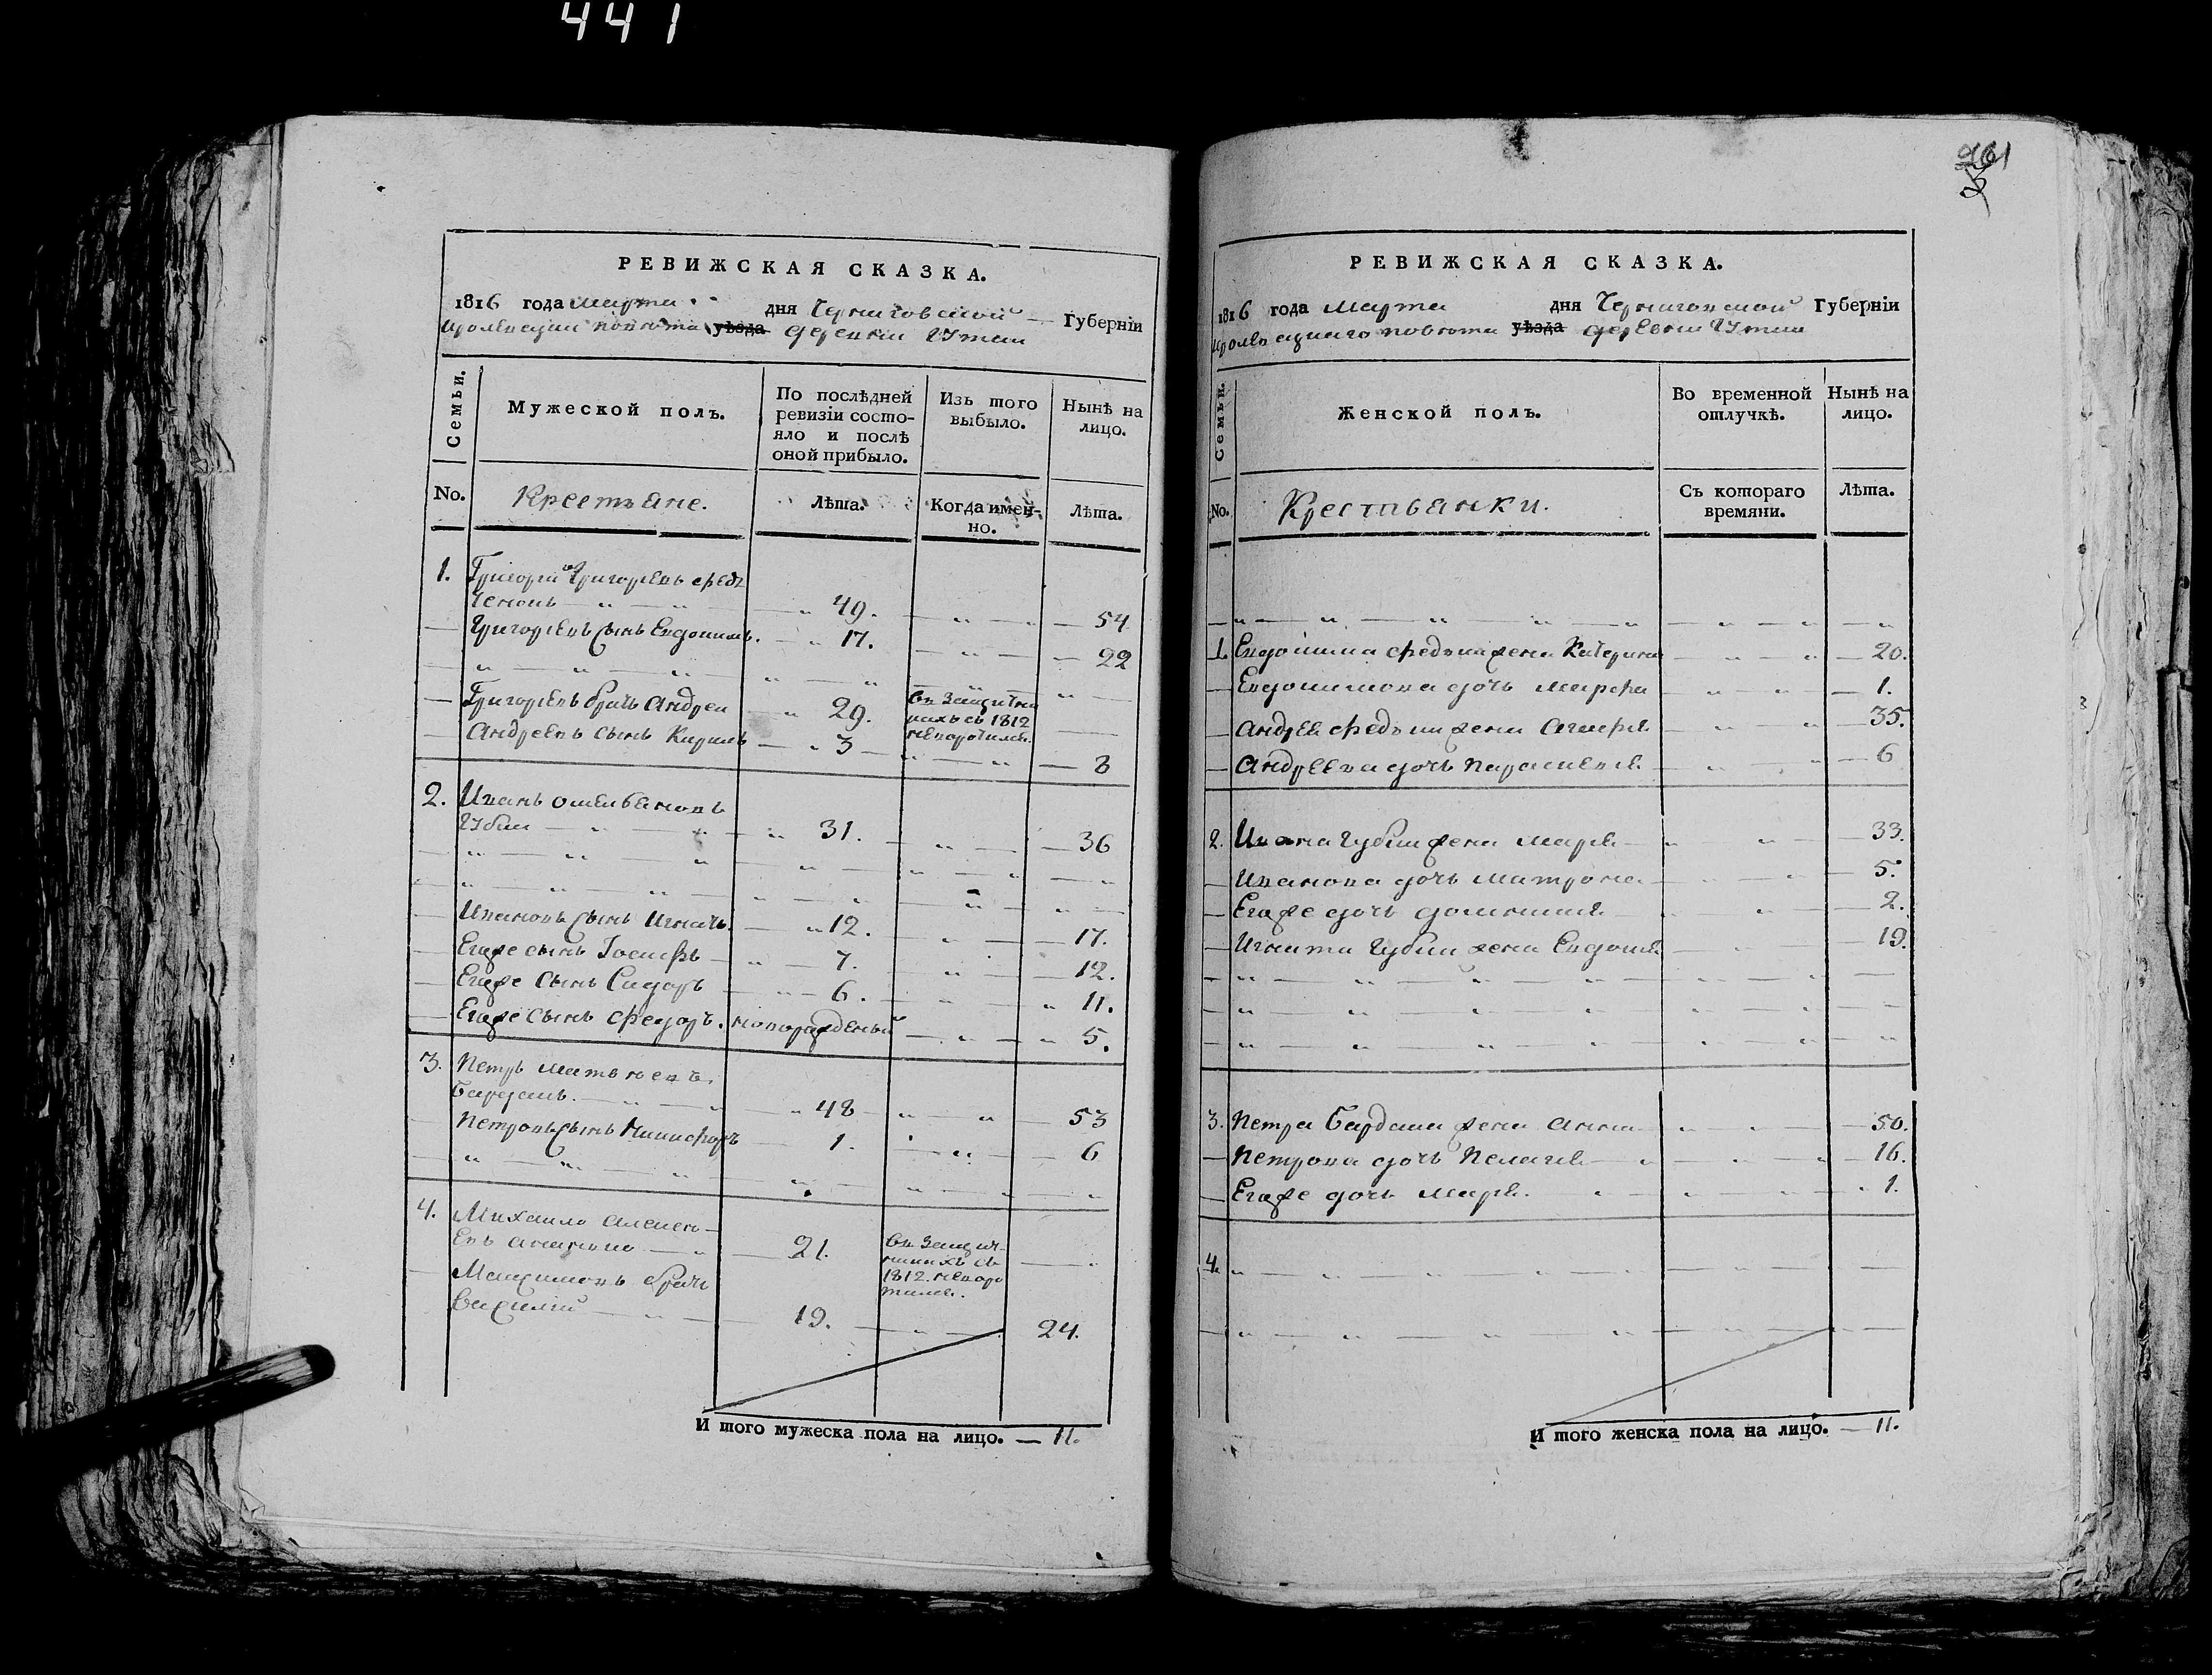 441
РЕВИЖСКАЯ СКАЗКА.
1816 года марта дня Черниговской Губерніи
повѣта уѣзда деревни
Семьи.
Мужеской полъ.
По послѣдней ревизіи состо-
яло и послѣ
оной прибыло.
Изъ того
выбыло.
Нынѣ на
лицо.
No.
Крестьяне.
Лѣта.
Когда имен-
но.
Лѣта.
1. Григорій Григорьевъ
49. 54
Григорьевъ сынъ Евдокимъ. 17. 22
Григорьевъ братъ Андрей 29. въ
съ 1812
Андреевъ сынъ Кирилъ 3 8
2. Иванъ
Губии 31. 36
Ивановъ сынъ Игнатъ. 12. 17.
Егоже сынъ Іосифъ 7. 12.
Егоже сынъ Сидоръ 6. 11.
Егоже сынъ Федоръ. новорожденый 5.
3. Петръ Матвѣевъ.
48 53
Петровъ сынъ Никифоръ 1. 6
4. Михайло
21. въ
съ
1812.
братъ
Василій 19. 24.
И того мужеска пола на лицо. 11.
РЕВИЖСКАЯ СКАЗКА.
1816 года Марта дня Черниговской Губерніи
повѣта уѣзда деревни
Семьи.
Женской полъ.
Во временной
отлучкѣ.
Нынѣ на
лицо.
No.
Крестьянки.
Съ котораго
времяни.
Лѣта.
1. Евдокима жена Катерина 20.
Евдокимова дочь Марфа 1.
Андрея жена 35.
Андреева дочь Параскевія 6
2. Ивана Губии жена Марія 33.
Иванова дочь Матрона 5.
Егоже дочь 2.
Игната Губии жена Евдокія 19.
3. Петра жена Анна 50.
Петрова дочь Пелагея 16.
Егоже дочь Марія. 1.
4.
И того женска пола на лицо. 11.